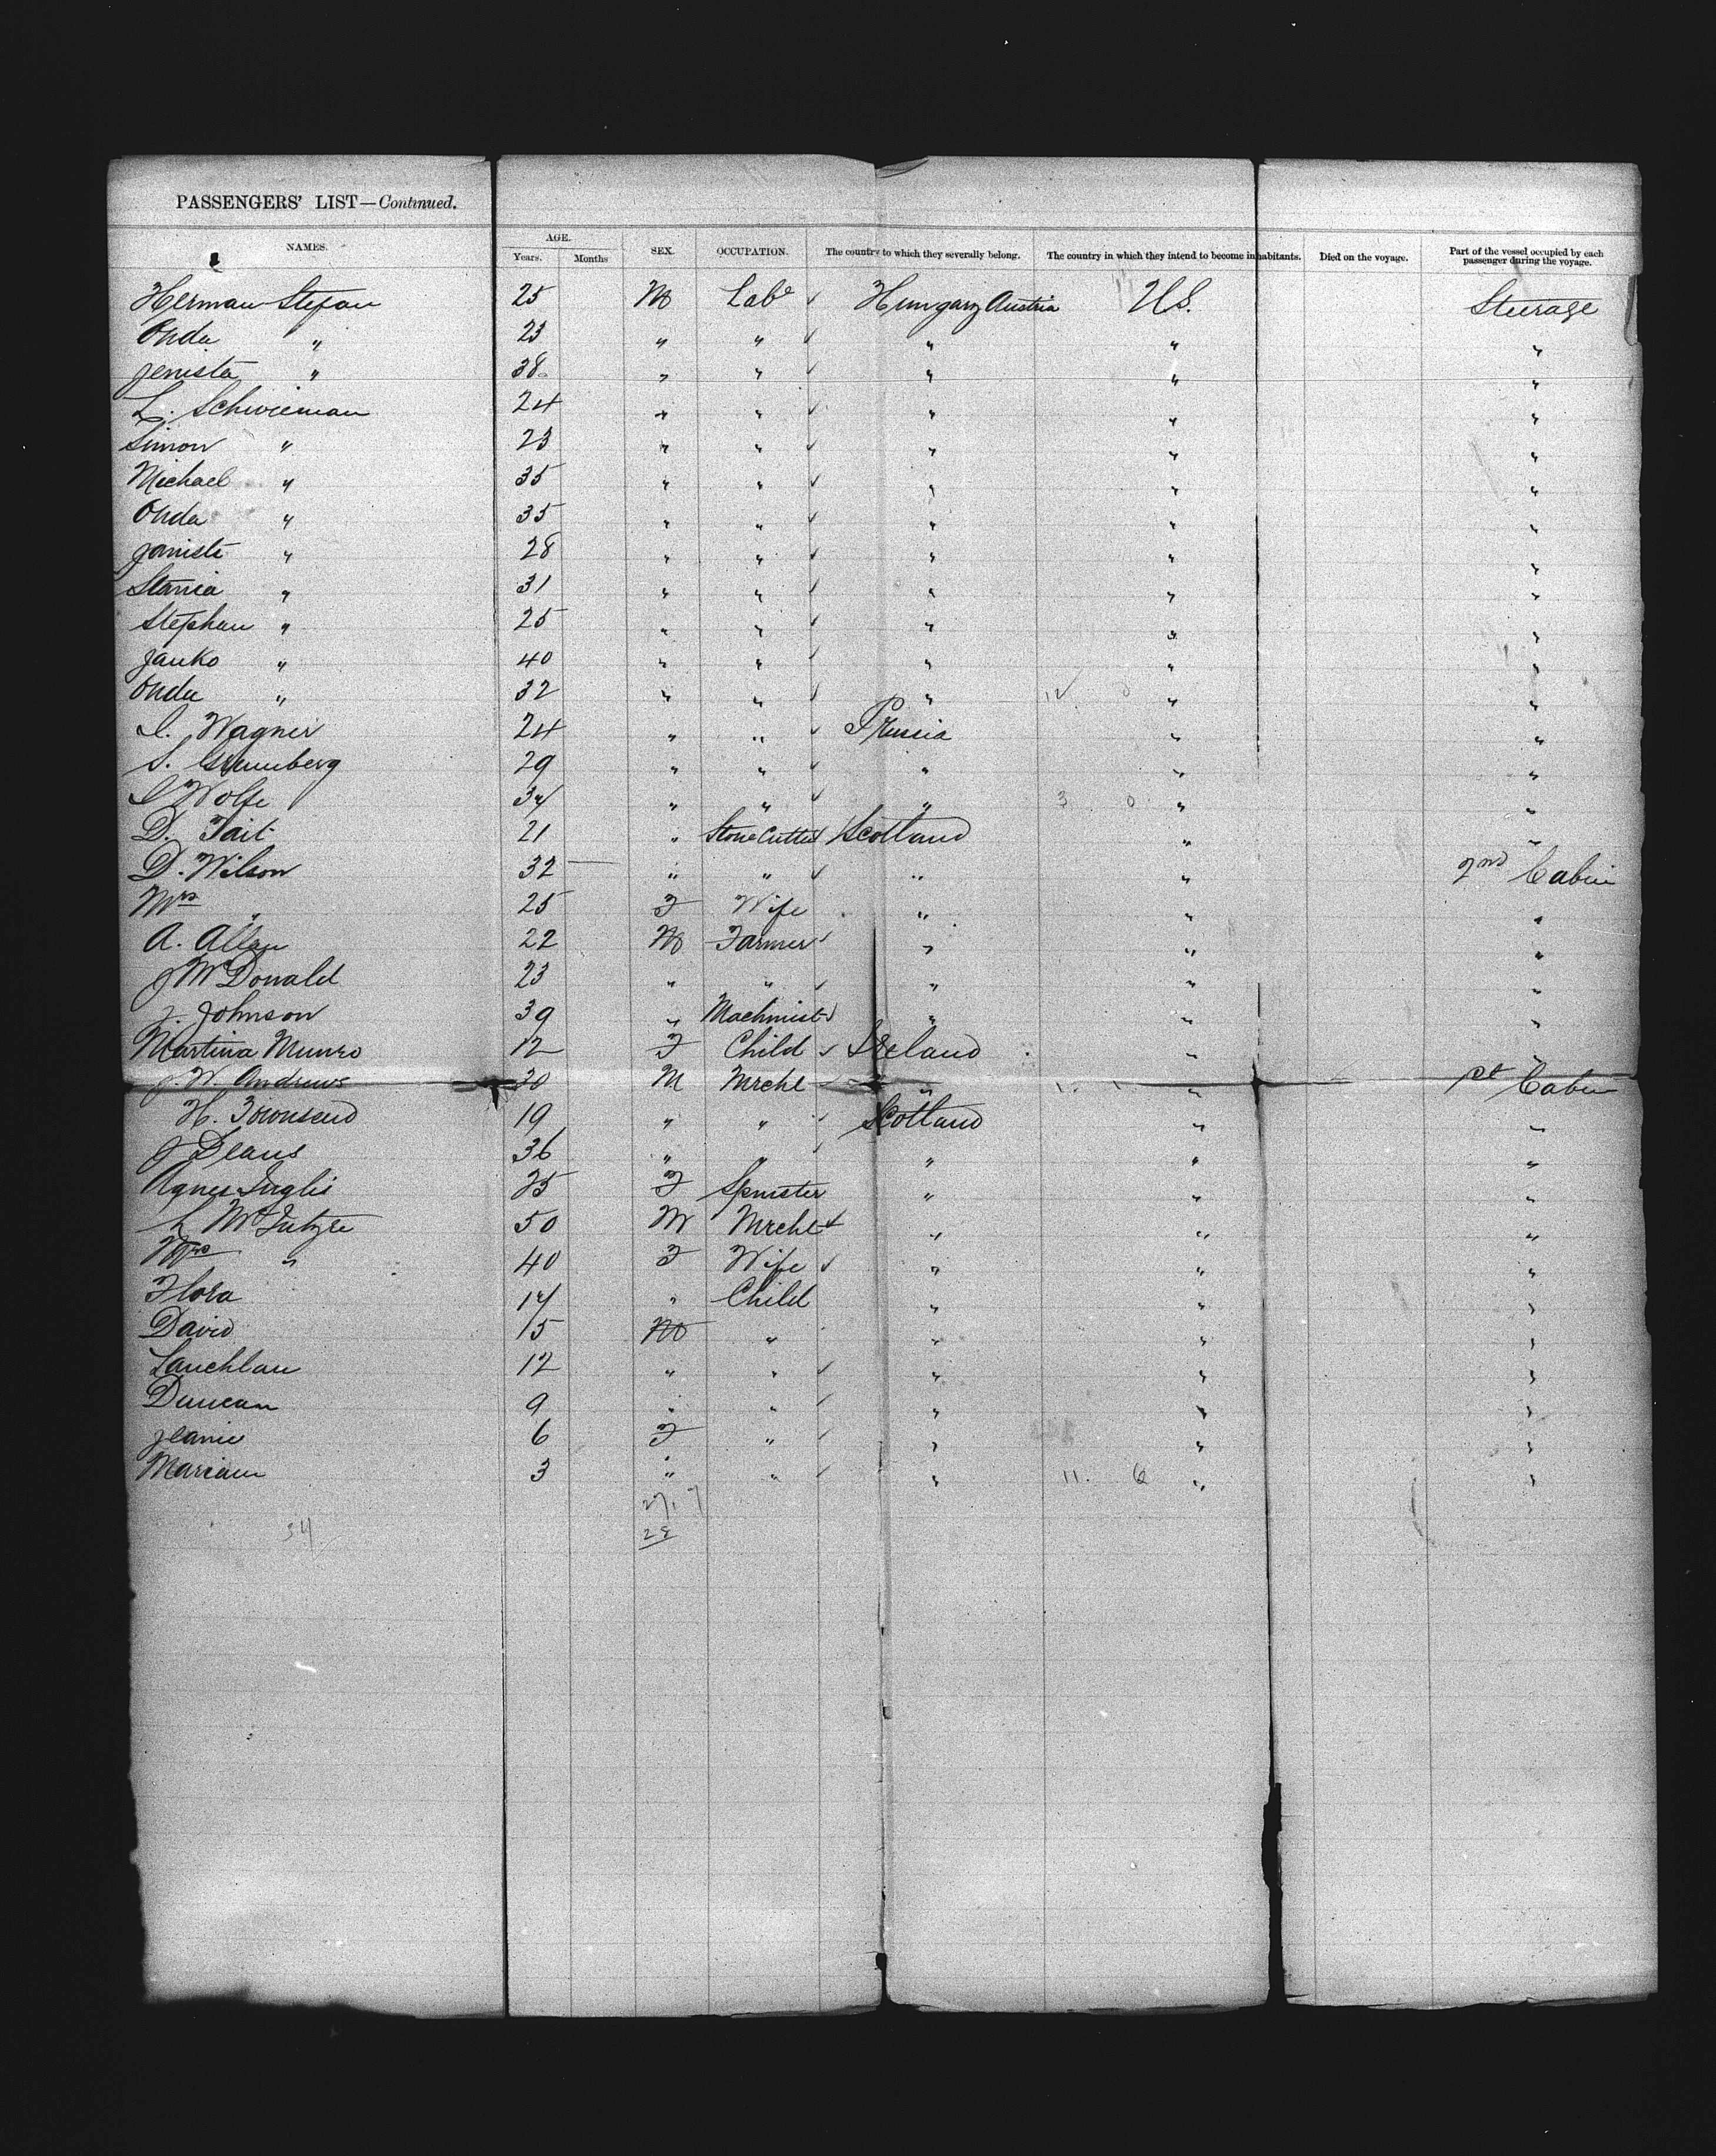 PASSENGERS' LIST—Continued.
NAMES. AGE. Years. Months SEX. OCCUPATION. The country to which they severally belong. The country in which they intend to become inhabitants. Died on the voyage. Part of the vessel occupied by each passenger during the voyage.
Herman Stefan 25 M Labr ✓ Hungary Austria U.S. Steerage
Onda " 23 " " ✓ " " "
Jenista " 38 " " ✓ " " "
L. Schwieman 24 " " ✓ " " "
Simon " 23 " " ✓ " " "
Michael " 35 " " ✓ " " "
Onda " 35 " " ✓ " " "
Janiste " 28 " " ✓ " " "
Stania " 31 " " ✓ " " "
Stephan " 25 " " ✓ " " "
Janko " 40 " " ✓ " " "
Onda " 32 " " ✓ " " "
Wagner 24 " " ✓ Prussia " "
S. Grumberg 29 " " ✓ " " "
Wolfe 34 " " ✓ " 3 0 " "
D. Tait 21 " Stone Cutter ✓ Scotland " "
D. Wilson 32 " " ✓ " " 2nd Cabin
Mrs " 25 F Wife " " "
A. Allan 22 M Farmer ✓ " " "
J McDonald 23 " " ✓ " " "
J. Johnson 39 " Machinist ✓ " " "
Martina Munro 12 F Child ✓ Ireland " "
J. W. Andrews 30 M Mrcht ✓ " " 1st Cabin
H. Townsend 19 " " ✓ Scotland " "
J Deans 36 " " ✓ " " "
Agnes Inglis 25 F Spinster " " "
L McIntyre 50 M Mrcht ✓ " " "
Mrs " 40 F Wife ✓ " " "
Flora 14 " Child " " "
David 15 M " " " "
Lauchlan 12 " " ✓ " " "
Duncan 9 " " ✓ " " "
Jeanie 6 F " ✓ " " "
Mariam 3 " " ✓ " 11. 6 " "
27 7
34 28